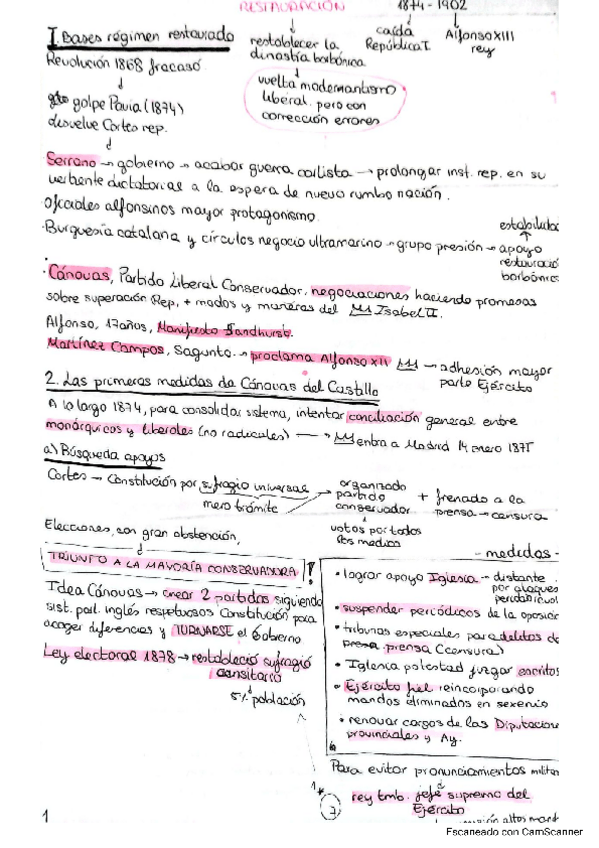 RESTAURACIÓN 1874 - 1902
I. Bases régimen restaurado
restablecer la dinastía borbónica
caída República I
Alfonso XIII rey
Revolución 1868 fracasó
vuelta modernantismo liberal pero con corrección errores
golpe Pavía (1874)
disuelve Cortes rep.
Serrano → gobierno → acabar guerra carlista → prolongar inst. rep. en su
vertiente dictatorial a la espera de nuevo rumbo nación.
Oficiales alfonsinos mayor protagonismo.
· Burguesía catalana y círculos negocio ultramarino → grupo presión → apoyo
restauració
borbónica
estabilidad
· Cánovas, Partido Liberal Conservador, negociaciones haciendo promesas
sobre superación Rep, + modos y maneras del Isabel II.
Alfonso, 17 años, Manifiesto Sandhurst.
Martínez Campos, Sagunto. → proclama Alfonso XII → adhesión mayor
parte Ejército
2. Las primeras medidas de Cánovas del Castillo
A lo largo 1874, para consolidar sistema, intentar conciliación general entre
monárquicos y liberales (no radicales) → entra a Madrid 14 enero 1875
a) Búsqueda apoyos
Cortes → Constitución por sufragio universal
mero trámite
organizado
partido
conservador
votos por todos
los medios
+ frenado a la
prensa → censura
Elecciones, con gran abstención,
TRIUNFO A LA MAYORÍA CONSERVADORA!
Idea Cánovas → crear 2 partidos siguiendo
sist. parl. inglés respetuosos Constitución para
acoger diferencias y TURNARSE el Gobierno
Ley electoral 1878 → restableció sufragio
censitario
5% población
- medidas -
• lograr apoyo Iglesia → distante
por ataques
• suspender periódicos de la oposició
• tribunas especiales para delitos de
prensa (censura)
• Iglesia potestad juzgar escritos
• Ejército fiel reincorporando
mandos eliminados en sexenio
• renovar cargos de las Diputacion
provinciales y Ay.
Para evitar pronunciamientos milita
rey tmb. jefe supremo del
Ejército
altos mand
1
Escaneado con CamScanner